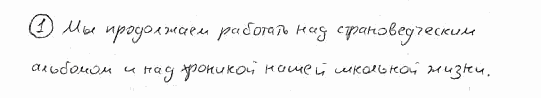 ① Мы продолжаем работать над страноведческим
альбомом и над хроникой нашей школьной жизни.